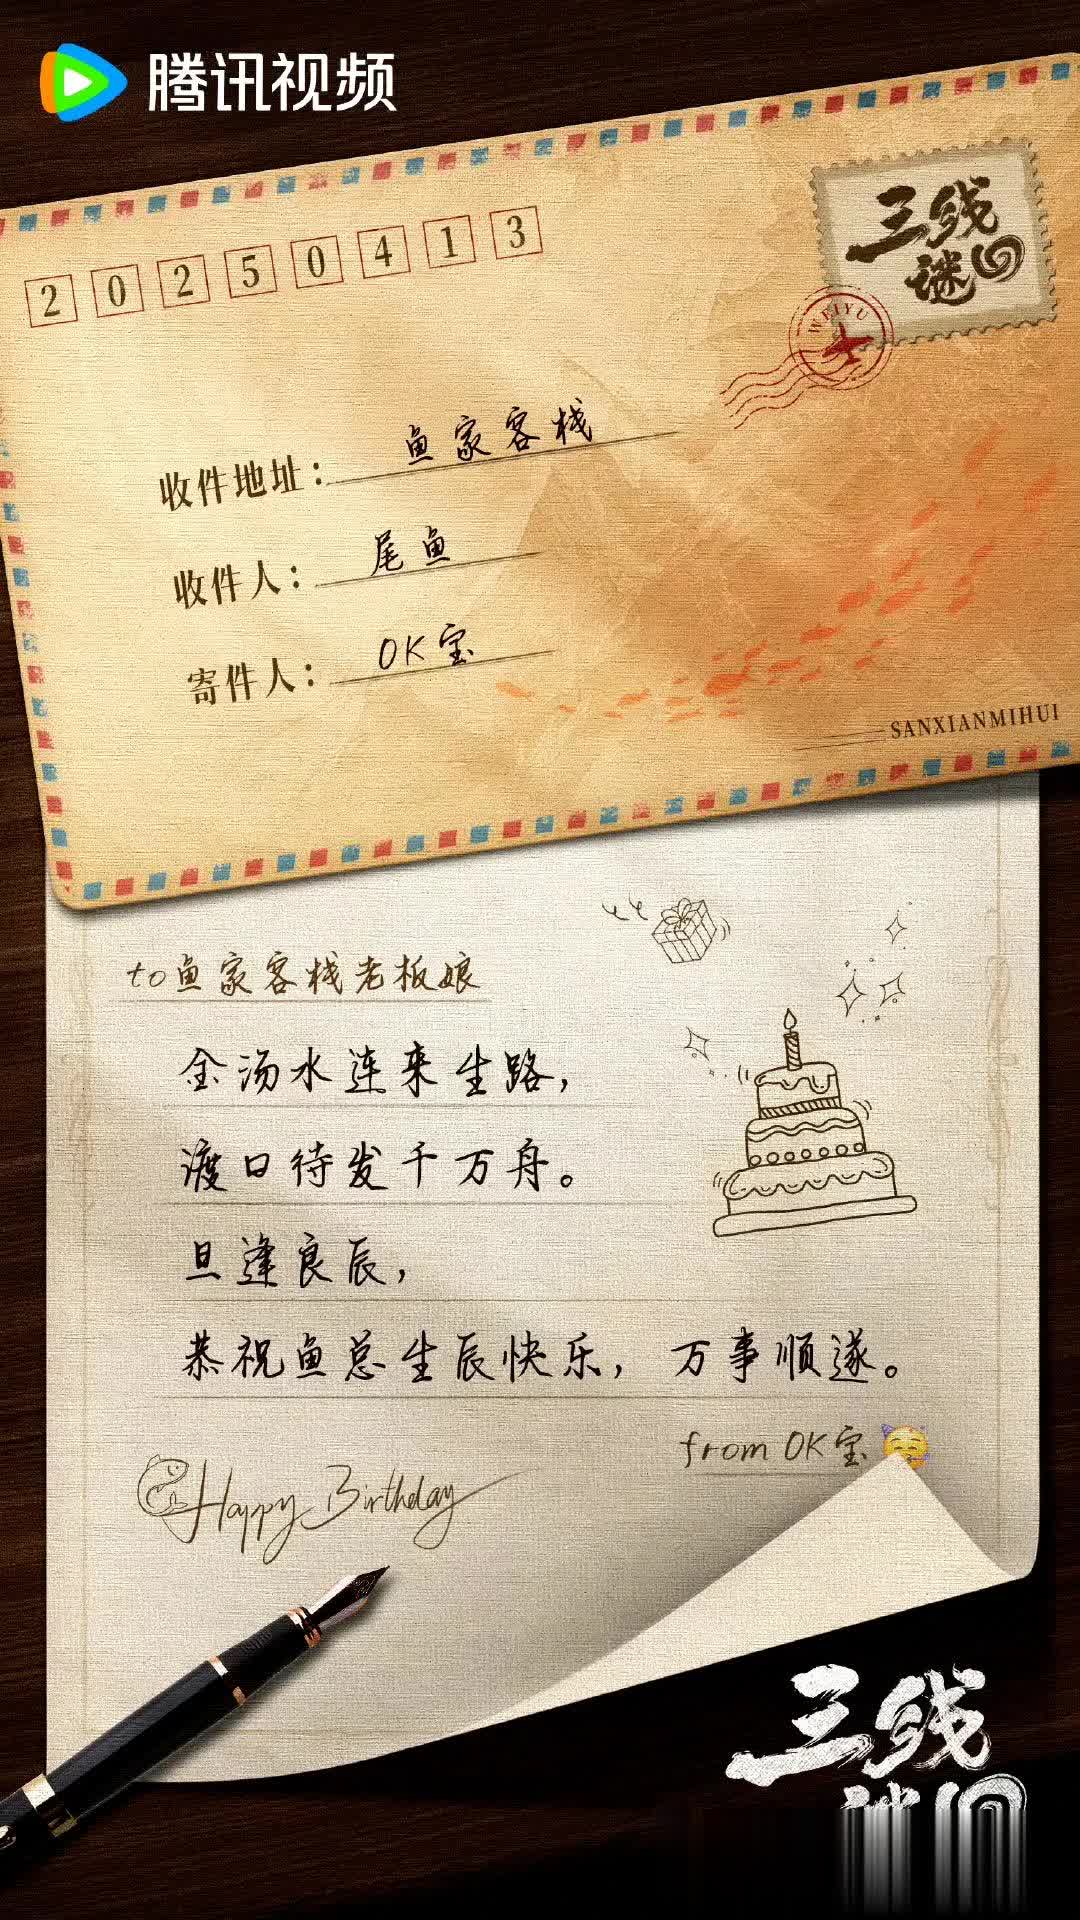 腾讯视频
20250413
三线
谜回
WEIYU
收件地址：鱼家客栈
收件人：尾鱼
寄件人：OK宝
SANXIANMIHUI
to鱼家客栈老板娘
金汤水连来生路，
渡口待发千万舟。
旦逢良辰，
恭祝鱼总生辰快乐，万事顺遂。
from OK宝
Happy Birthday
三线
谜回